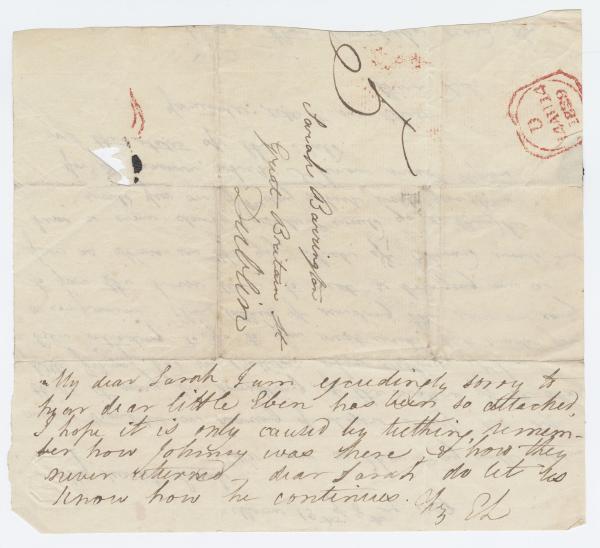 Sarah Barrington
Great Britain St
Dublin
D
14 AU 14
1839
My dear Sarah I am exceedingly sorry to
hear dear little Eben has been so attacked,
I hope it is only caused by teething, remem-
ber how Johnny was there, & how they
never returned - dear Sarah do let us
know how he continues.